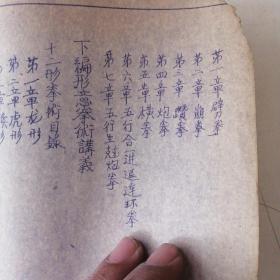 第一章劈拳
第二章崩拳
第三章鑽拳
第四章炮拳
第五章橫拳
第六章五行合一進退連环拳
第七章五行生尅炮拳
下編形意拳術講義
十二形拳術目錄
第一章龙形
第二章虎形